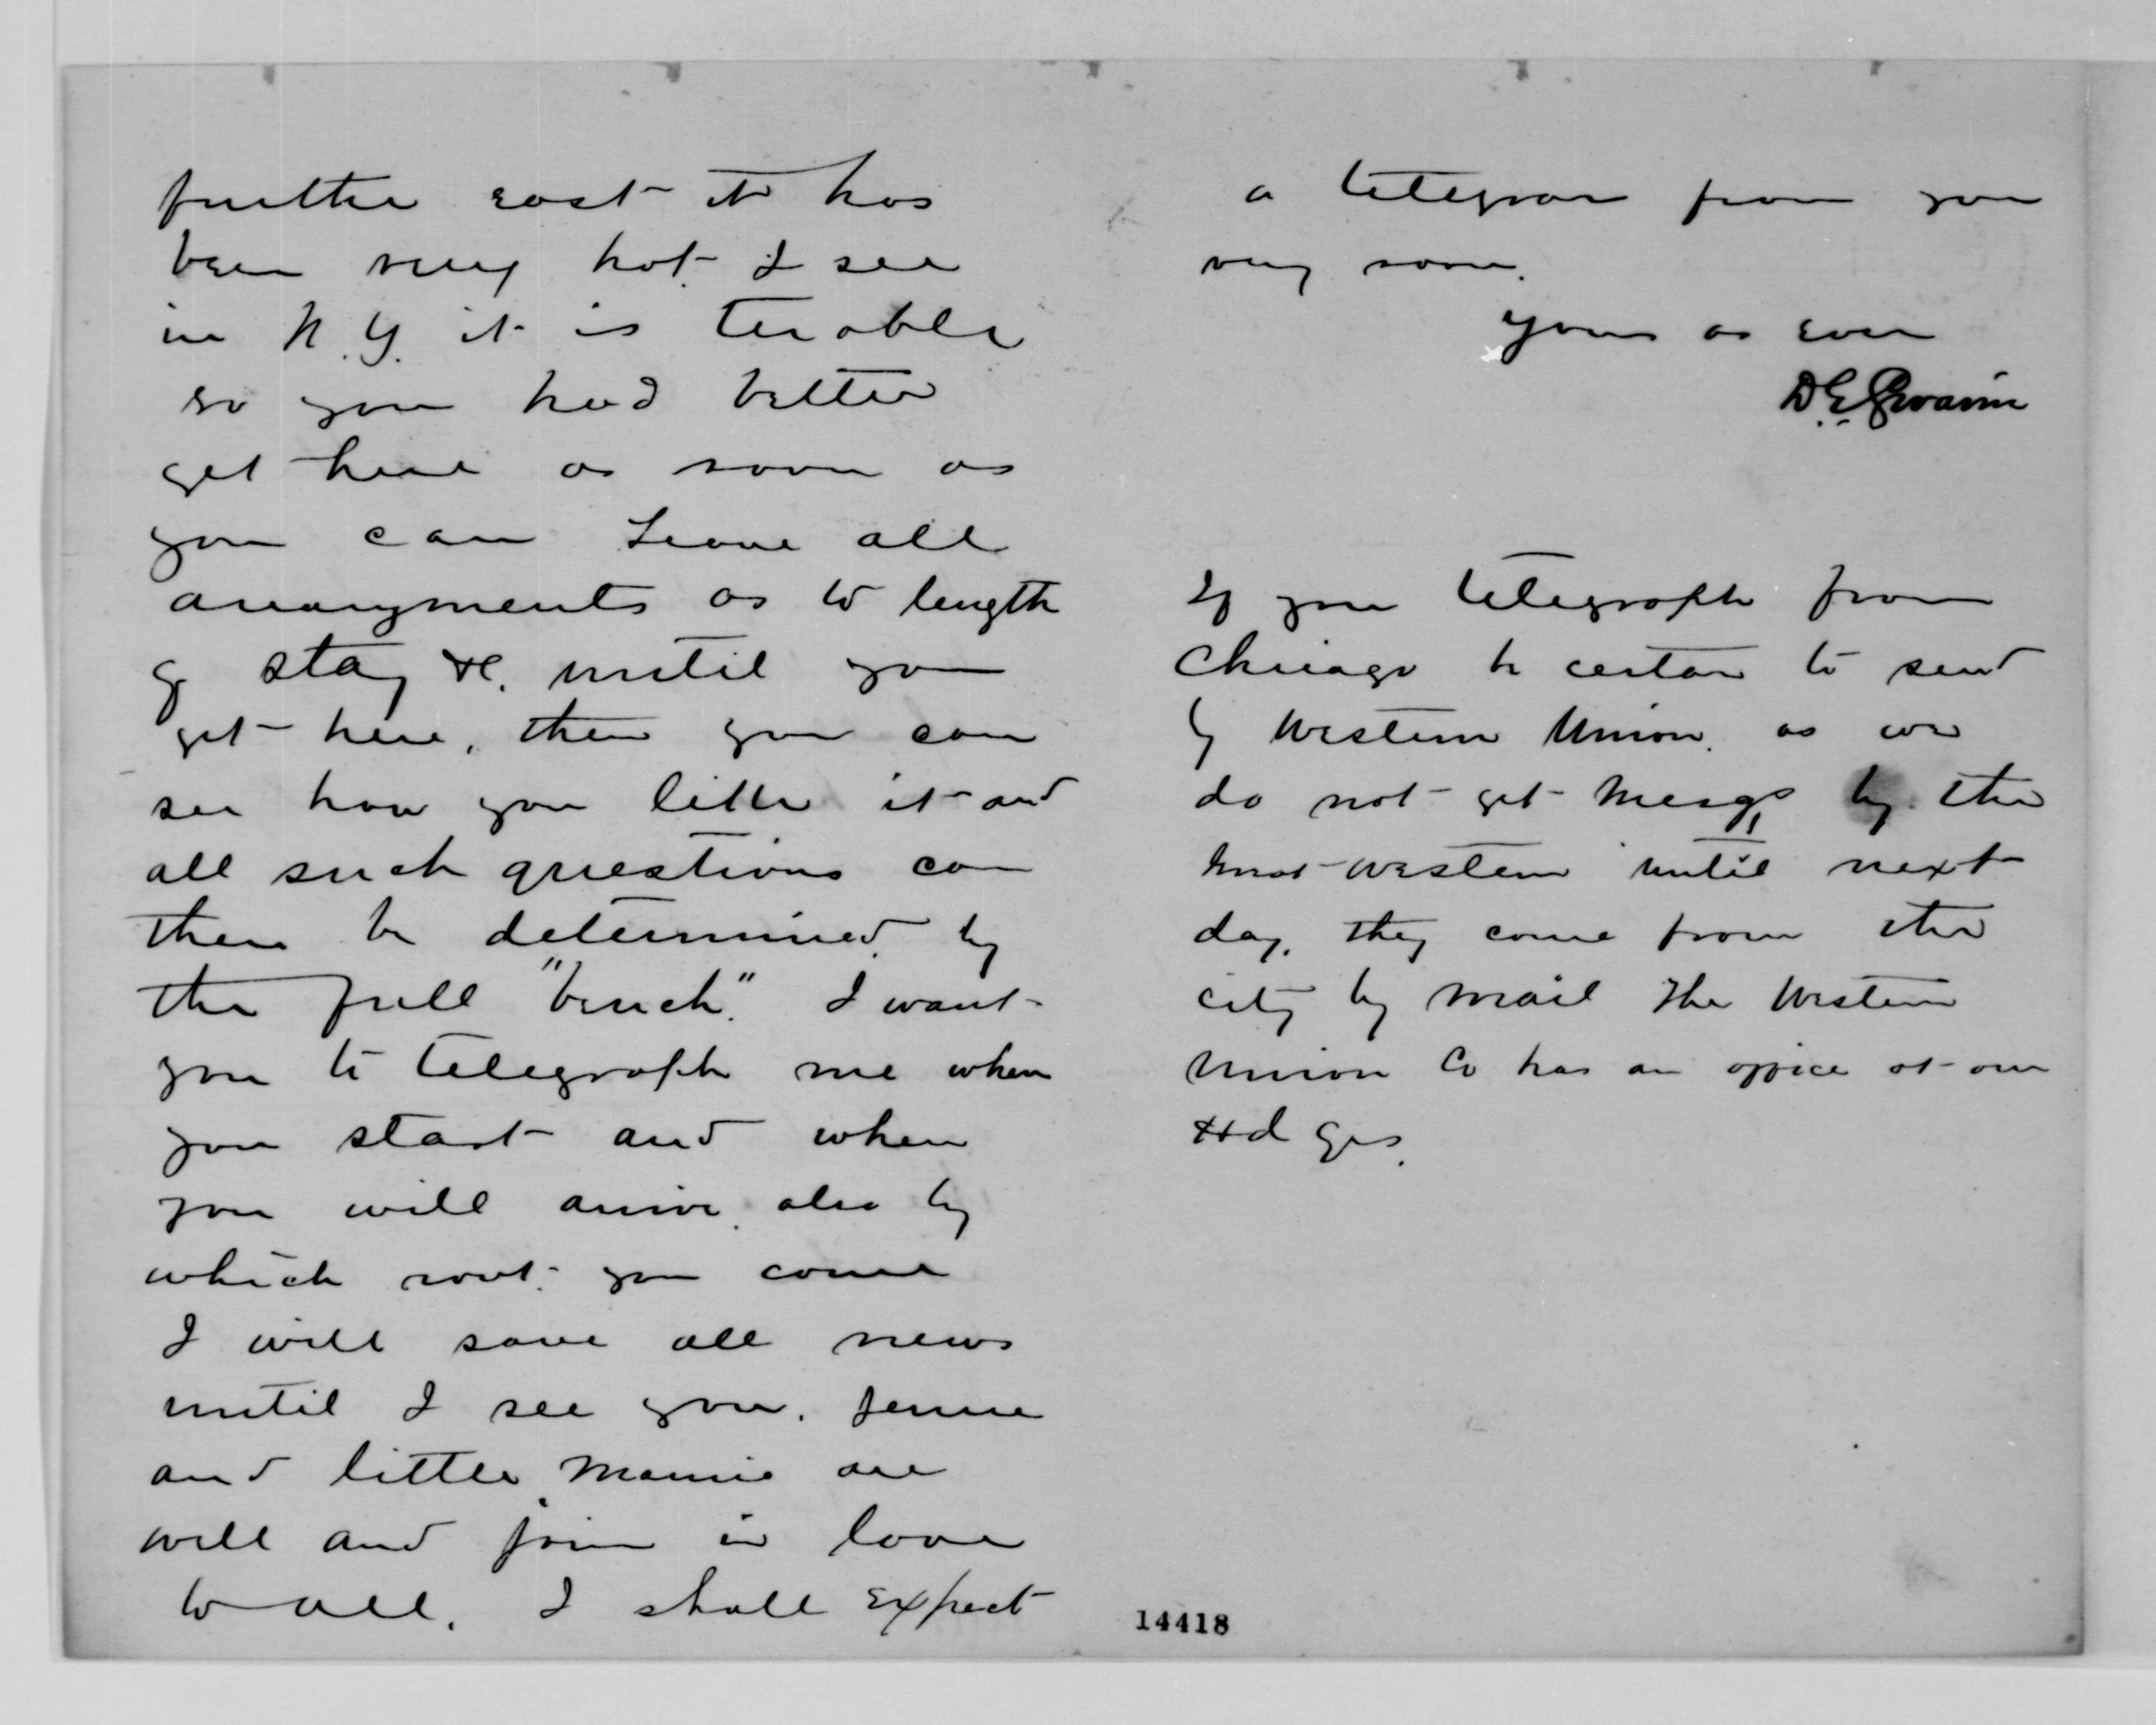 further east it has
been very hot. I see
in N.Y. it is terable
so you had better
get here as soon as
you can Leave all
arrangments as to length
of stay &c. until you
get here, then you can
see how you like it and
all such questions can
then be determined by
the full "bench". I want
you to telegraph me when
you start and when
you will arrive. also by
which rout. you come
I will save all news
until I see you. Jennie
and little Mamie are
well and join in love
to all. I shall expect
a telegram from you
very soon.
Yours as ever
D.G. Swaim
If you telegraph from
Chicago be certan to send
by Western Union. as we
do not get by the
western until next
day. they come from the
city by mail The Western
Union Co has an office at our
Hd Qrs.
14418